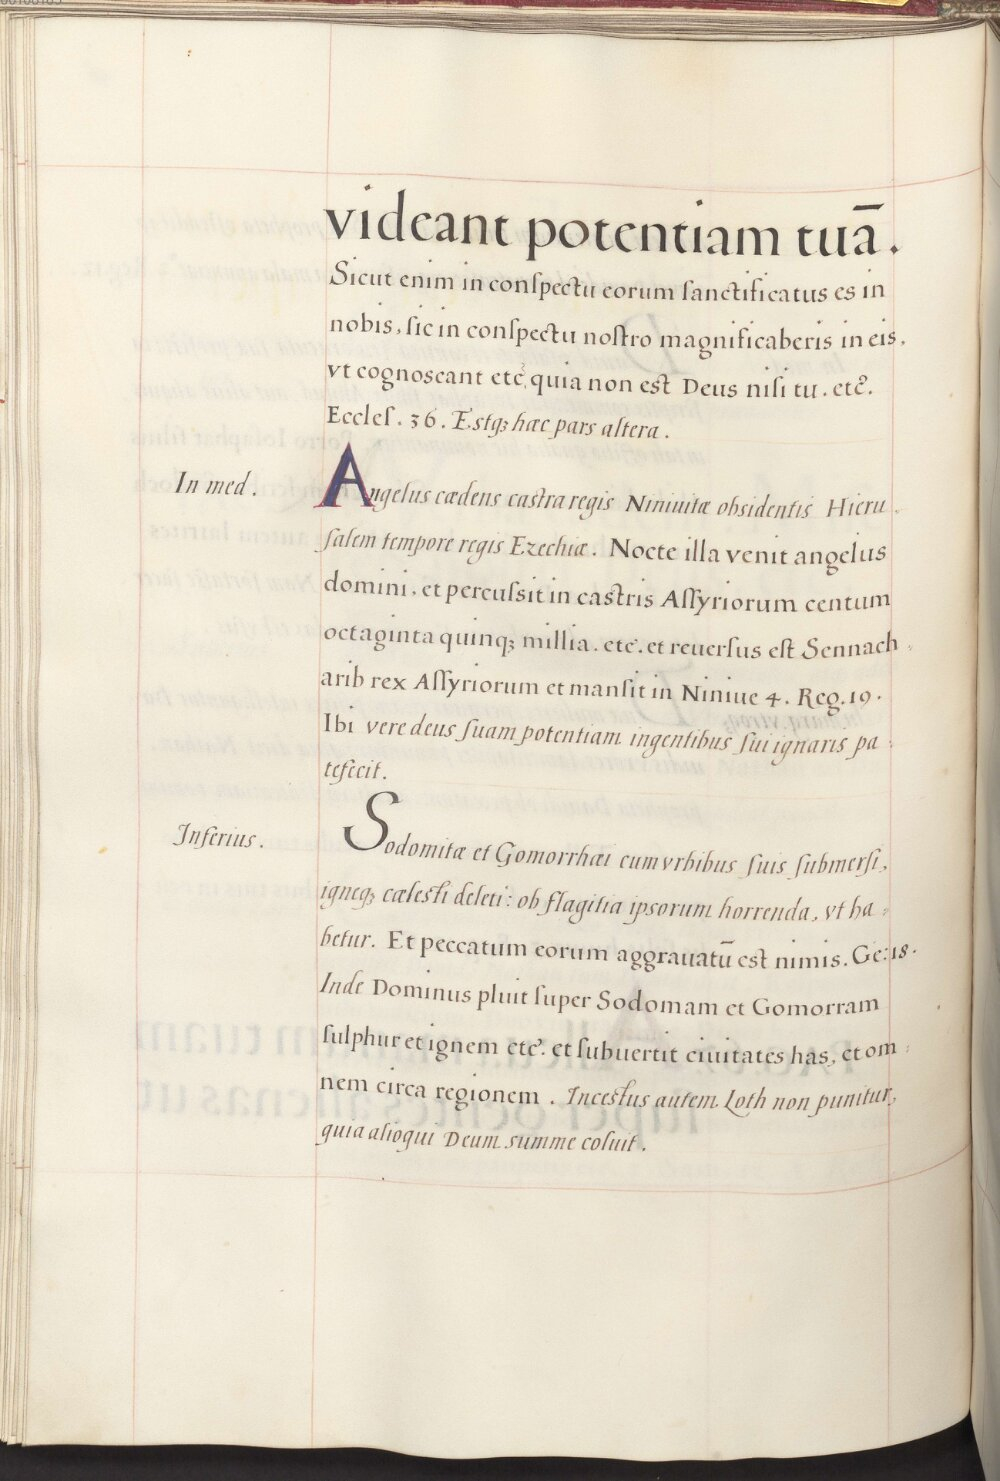 videant potentiam tuā.
Sicut enim in conſpectu eorum ſanctificatus es in
nobis, ſic in conſpectu noſtro magnificaberis in eis,
vt cognoscant etc̃, quia non est Deus niſi tu. etc̃.
Eccleſ. 36. Estqꝫ hæc pars altera.
In med.
Angelus cædens castra regis Niniuitæ obsidentis Hieru-
ſalem tempore regis Ezechiæ. Nocte illa venit angelus
domini, et percuſsit in castris Aſſyriorum centum
octaginta quinqꝫ millia. etc̃. et reuerſus eſt Sennach-
arib rex Aſſyriorum et manſit in Niniue 4. Reg. 19.
Ibi vere deus ſuam potentiam ingentibus ſui ignaris pa-
tefecit.
Inferius.
Sodomitæ et Gomorrhæi cum vrbibus ſuis ſubmerſi,
igneqꝫ cælesti deleti: ob flagitia ipsorum horrenda, vt ha-
betur. Et peccatum eorum aggrauatū est nimis. Ge: 18.
Inde Dominus pluit ſuper Sodomam et Gomorram
ſulphur et ignem etc̃. et ſubuertit ciuitates has, et om-
nem circa regionem. Incestus autem Loth non punitur,
quia alioqui Deum summe coluit.